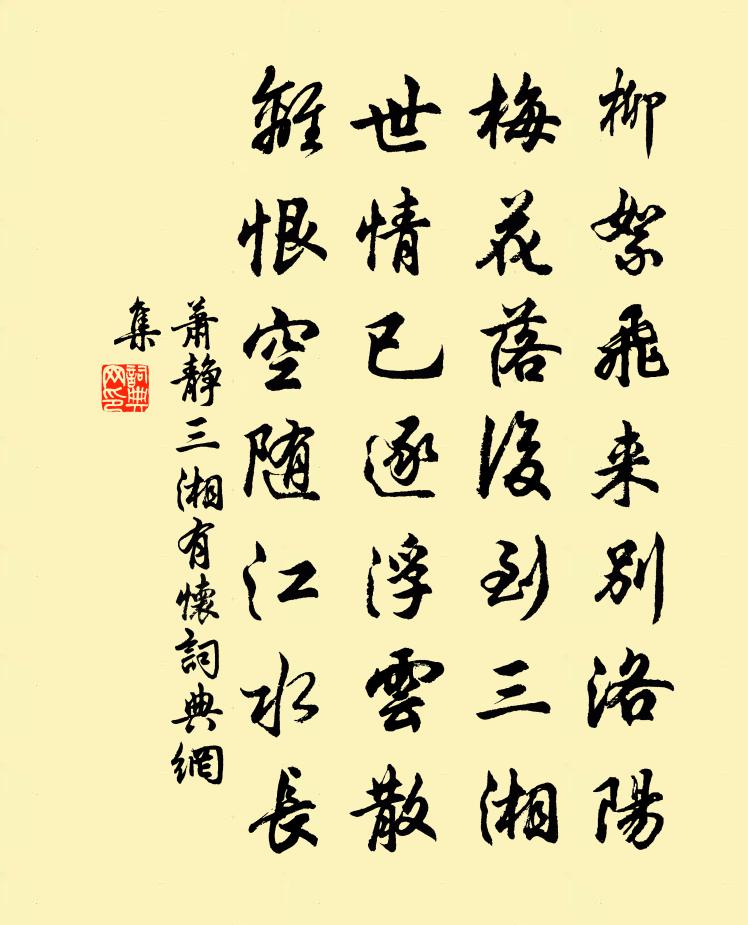 柳絮飛来别洛陽
梅花落後到三湘
世情已逐浮雲散
離恨空随江水長
蕭静三湘有懷詞典網
集
詞典
网印